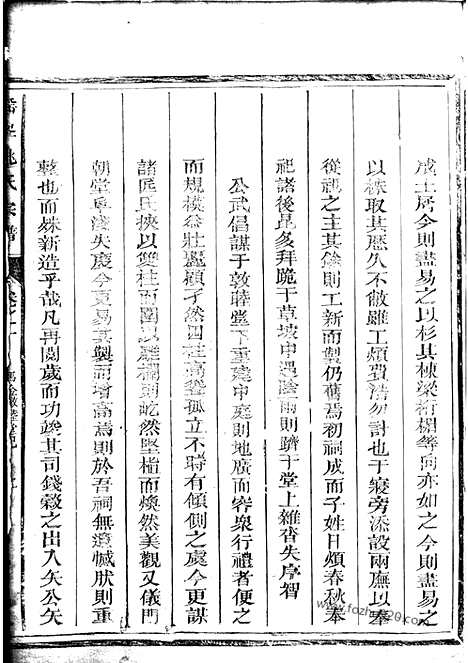 成土居今則盡易之以杉其棟梁桁楣等向亦如之今則盡易之
以株取其歷久不敝雖工煩費浩勿計也于寢旁添設兩廡以奉
從祀之主其餘則工新而製仍舊焉初祠成而子姓日煩春秋奉
祀諸後昆多拜跪于草坡中遇陰雨則躋于堂上雜沓失序智
公武倡謀于敦睦堂下重建中庭則地廣而容衆行禮者便之
而規模益壯麗顧孑然四柱高聳孤立不時有傾側之處今更謀
諸匠氏挾以雙柱而圍以欄則屹然堅楷而煥然美觀又儀門
朝堂卑淺失度今更易其製而增高焉則於吾祠無遺憾肰則重
整也而殊新造乎哉凡再閱歲而功竣其司錢穀之出入矢公矢
姚氏宗譜
www.fozhu920.com